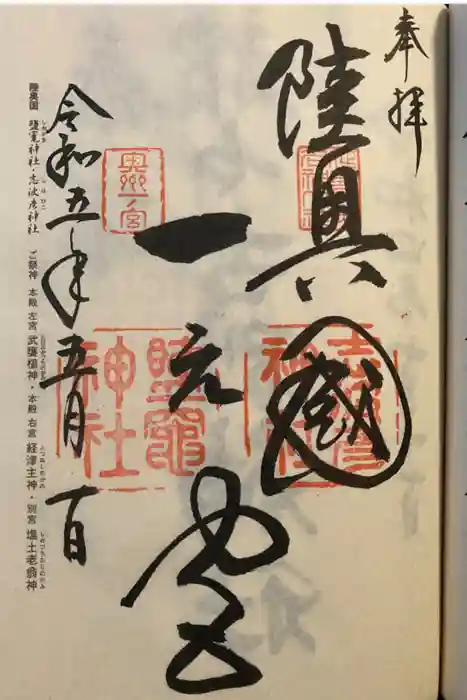 奉拝
陸奥國
一之宮
令和五年五月一日
奥州一宮
志波彦神社
鹽竈神社
陸奥国 鹽竈神社・志波彦神社 ご祭神 本殿 左宮 武甕槌神・本殿 右宮 経津主神・別宮 塩土老翁神